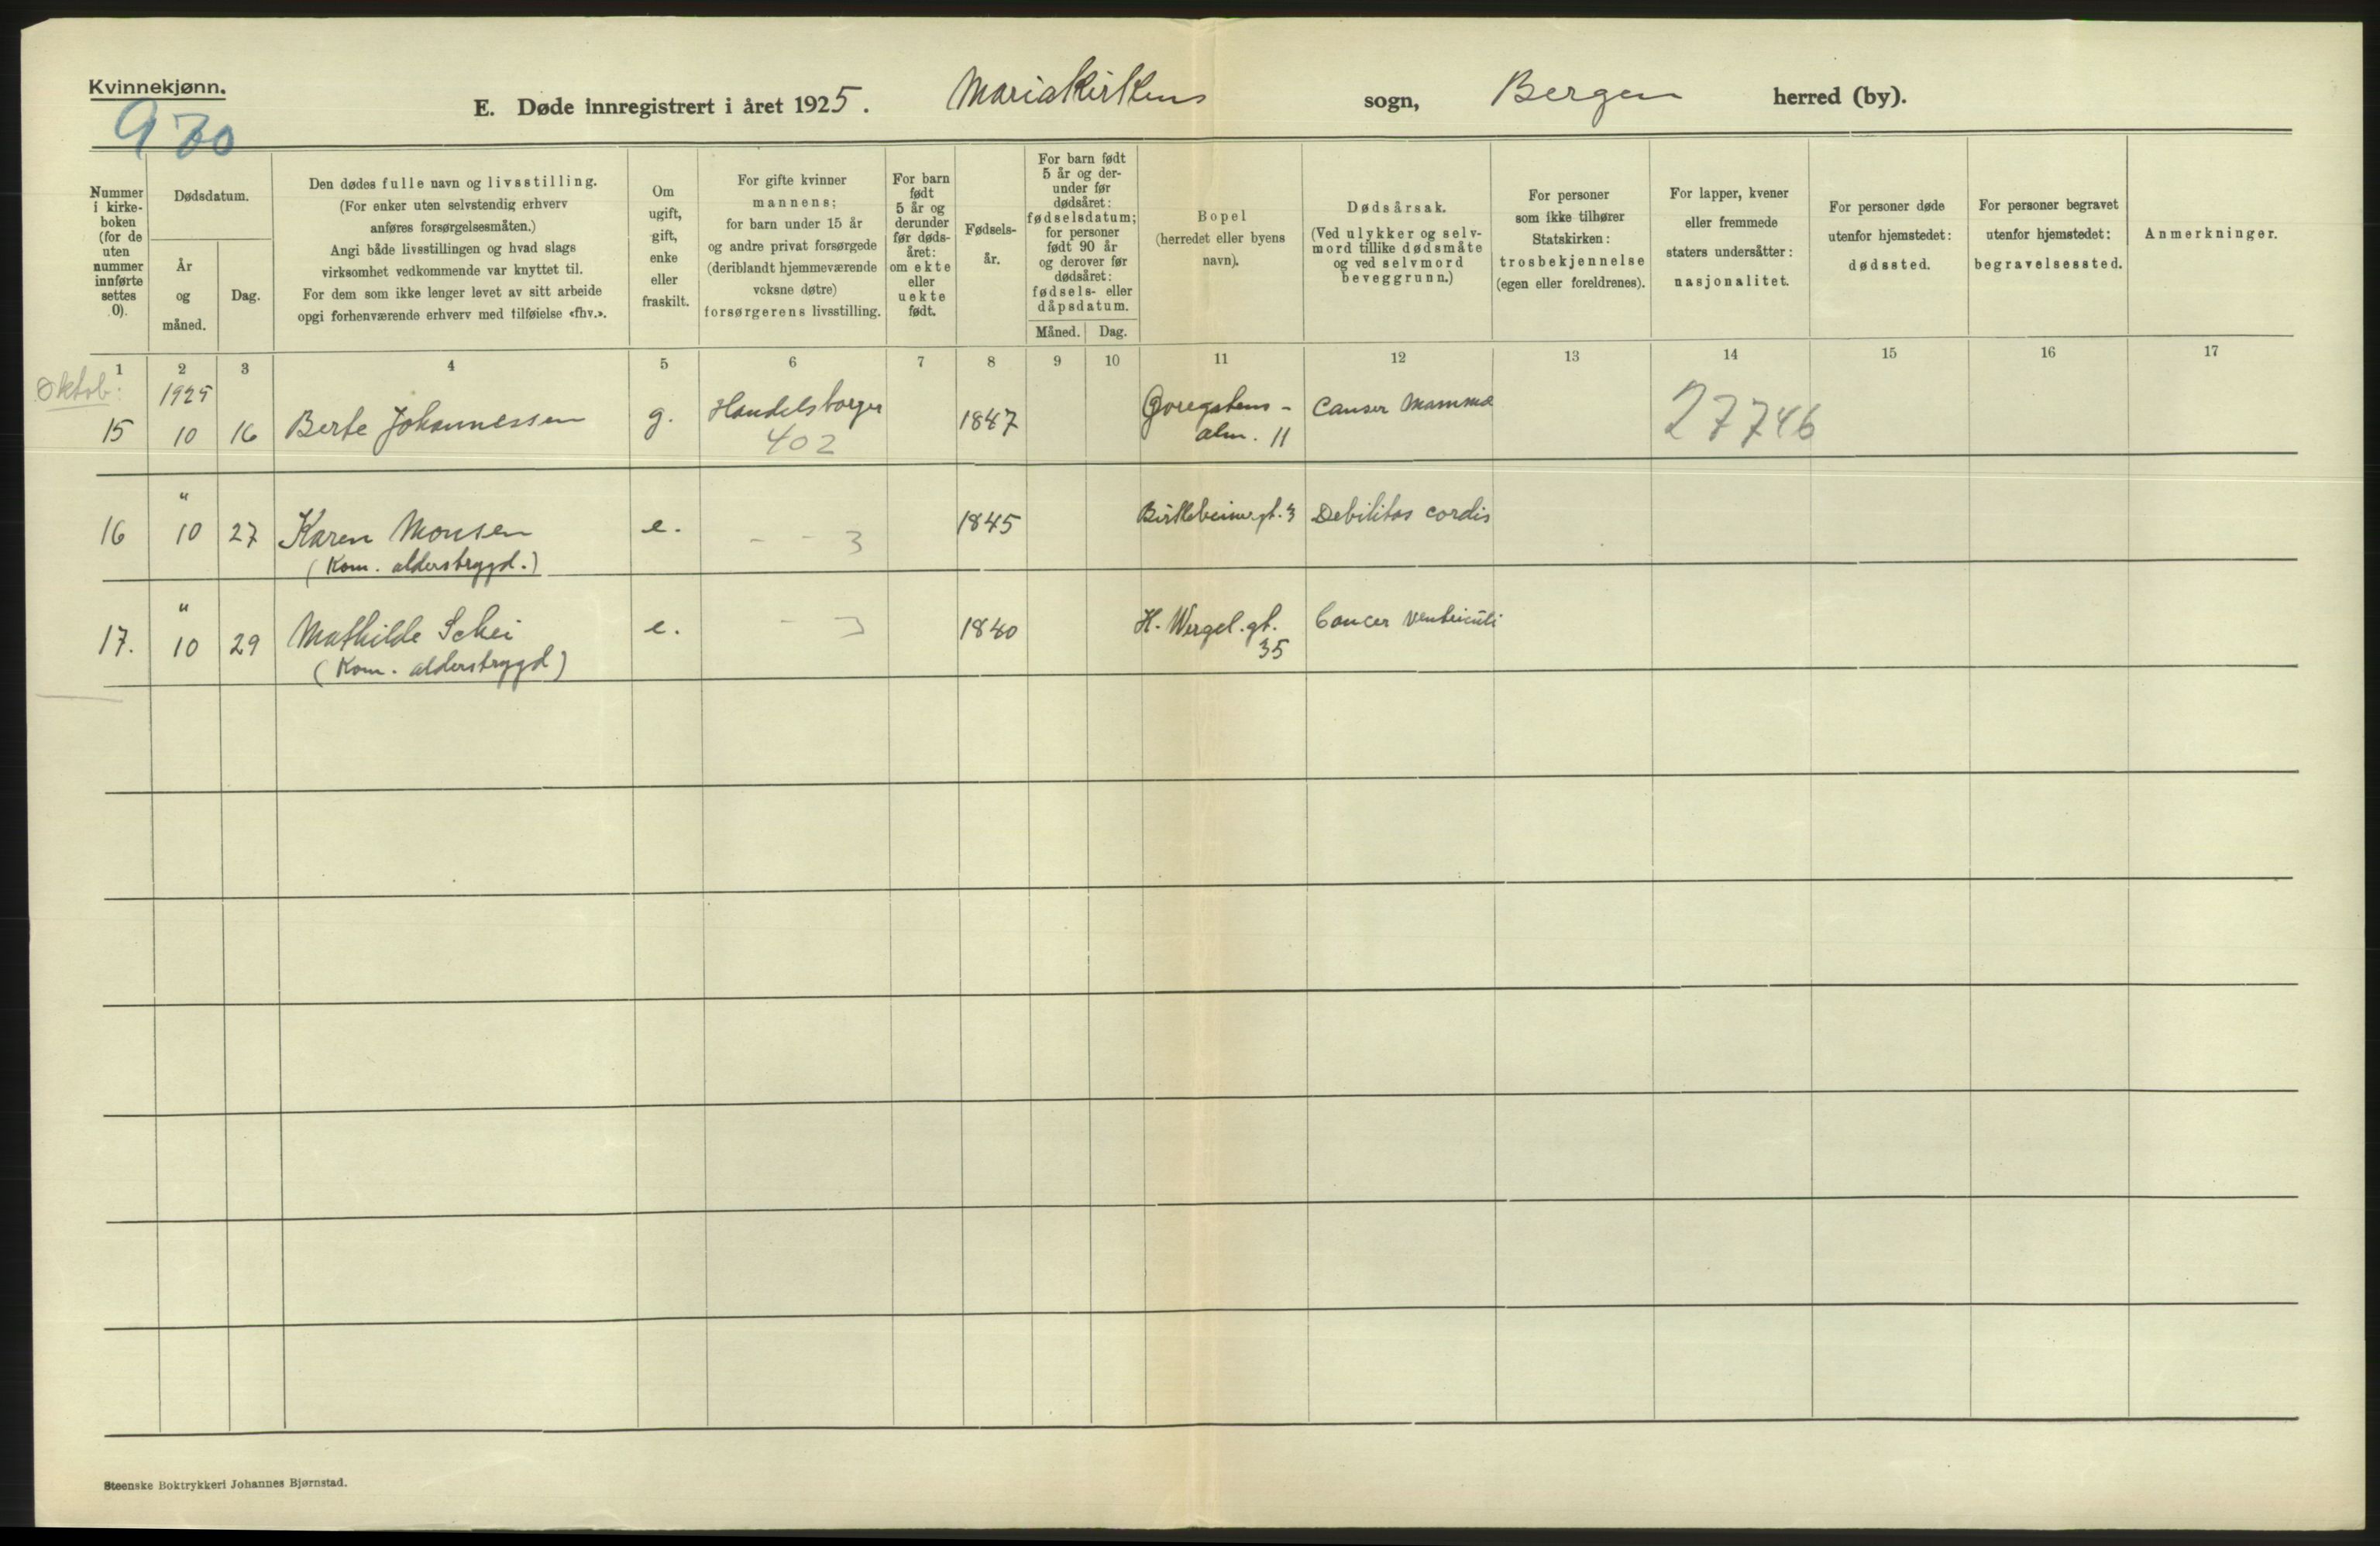 Kvinnekjønn.
920
E. Døde innregistrert i året 1925. Mariakirkens sogn, Bergen herred (by).
Nummer
i kirke-
boken
(for de
uten
nummer
innførte
settes
0).
Dødsdatum.
År
og
måned.
Dag.
Den dødes fulle navn og livsstilling.
(For enker uten selvstendig erhverv
anføres forsørgelsesmåten.)
Angi både livsstillingen og hvad slags
virksomhet vedkommende var knyttet til.
For dem som ikke lenger levet av sitt arbeide
opgi forhenværende erhverv med tilføielse «fhv.».
Om
ugift,
gift,
enke
eller
fraskilt.
For gifte kvinner
mannens;
for barn under 15 år
og andre privat forsørgede
(deriblandt hjemmeværende
voksne døtre)
forsørgerens livsstilling.
For barn
født
5 år og
derunder
før døds-
året:
om ekte
eller
uekte
født.
Fødsels-
år.
For barn født
5 år og der-
under før
dødsåret:
fødselsdatum;
for personer
født 90 år
og derover før
dødsåret:
fødsels- eller
dåpsdatum.
Måned. Dag.
Bopel
(herredet eller byens
navn).
Dødsårsak.
(Ved ulykker og selv-
mord tillike dødsmåte
og ved selvmord
beveggrunn.)
For personer
som ikke tilhører
Statskirken:
trosbekjennelse
(egen eller foreldrenes).
For lapper, kvener
eller fremmede
staters undersåtter:
nasjonalitet.
For personer døde
utenfor hjemstedet:
dødssted.
For personer begravet
utenfor hjemstedet:
begravelsessted.
Anmerkninger.
1 2 3 4 5 6 7 8 9 10 11 12 13 14 15 16 17
Oktob:
1925
15 10 16 Berte Johannessen g. Handelsborger 1847 alm. 11 Canser Mamma 27746
402
"
16 10 27 Karen Monsen e. - - 3 1845 Birkebeinergt. 3 Debilitas cordis
(Kom. alderstrygd.)
"
17. 10 29 Mathilde Schei e. - 3 1840 H. Wergel. gt. 35 Cancer ventriculi
(Kom. alderstrygd)
Steenske Boktrykkeri Johannes Bjørnstad.